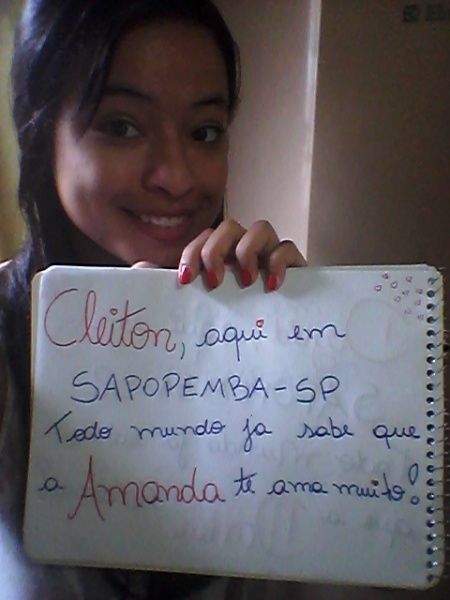 Cleiton, aqui em
SAPOPEMBA-SP
Todo mundo ja sabe que
a Amanda te ama muito!